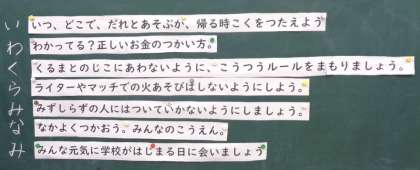 いつ、どこで、だれとあそぶか、帰る時こくをつたえよう
わかってる?正しいお金のつかい方。
くるまとのじこにあわないように、こうつうルールをまもりましょう。
ライターやマッチでの火あそびはしないようにしよう。
みずしらずの人にはついていかないようにしましょう。
なかよくつかおう。みんなのこうえん。
みんな元気に学校がはじまる日に会いましょう
いわくらみなみ